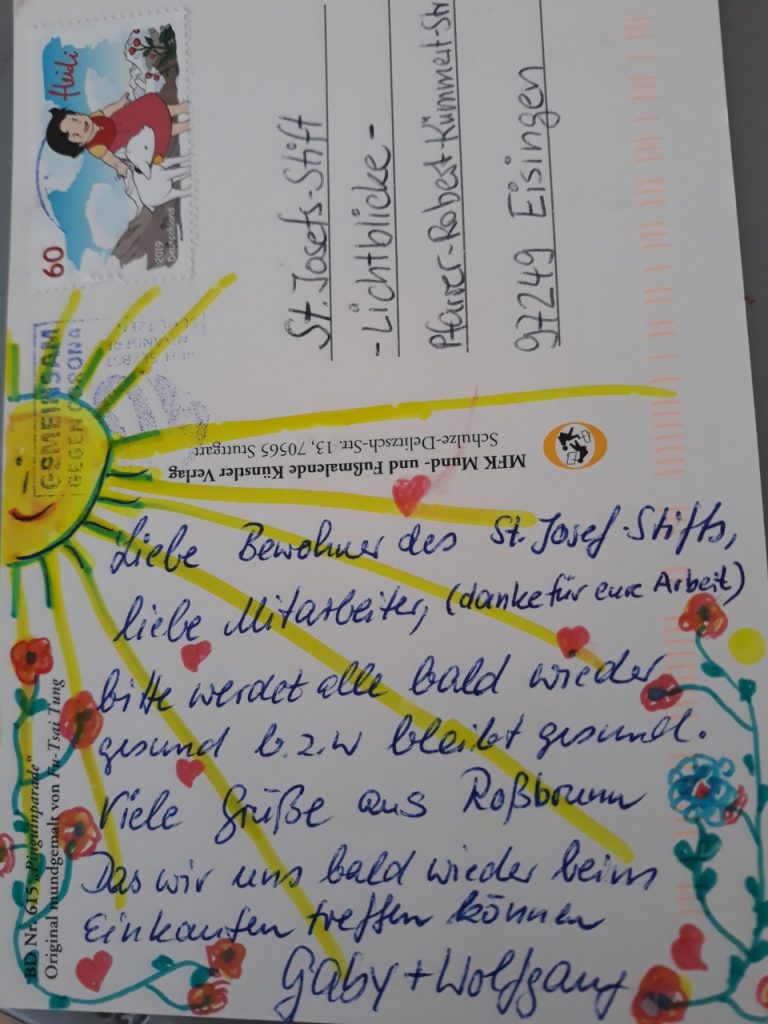 Heidi
60
2019
Deutschland
GEMEINSAM
GEGEN CORONA
St. Josefs-Stift
- Lichtblicke -
Pfarrer-Robert-Kümmert-Str
97249 Eisingen
MFK Mund- und Fußmalende Künstler Verlag
Schulze-Delitzsch-Str. 13, 70565 Stuttgart
Liebe Bewohner des St. Josef-Stifts,
liebe Mitarbeiter, (danke für eure Arbeit)
bitte werdet alle bald wieder
gesund b.z.w bleibt gesund.
Viele Grüße aus Roßbrunn
Das wir uns bald wieder beim
Einkaufen treffen können
Gaby + Wolfgang
BD Nr. 615 „Pinguinparade“
Original mundgemalt von Fu-Tsai Tung